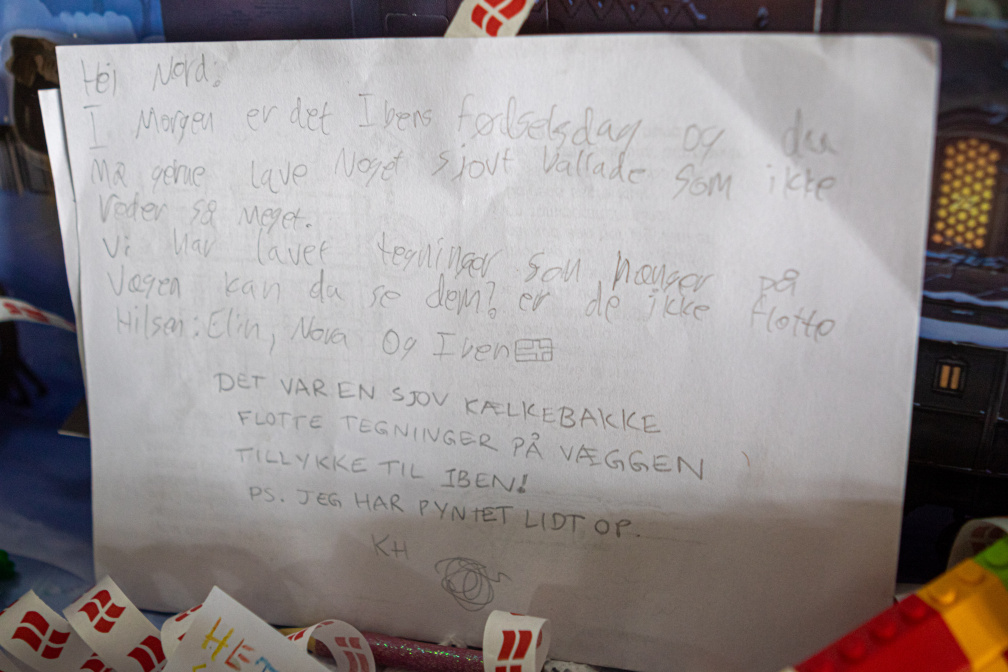 Hej Nord:
I Morgen er det Ibens fødselsdag og du
må gerne lave Noget sjovt ballade som ikke
roder så meget.
Vi har lavet tegninger som hænger på
Vægen kan du se dem? er de ikke flotte
Hilsen: Elin, Nova og Iben
DET VAR EN SJOV KÆLKEBAKKE
FLOTTE TEGNINGER PÅ VÆGGEN
TILLYKKE TIL IBEN!
PS. JEG HAR PYNTET LIDT OP.
KH
HEJ